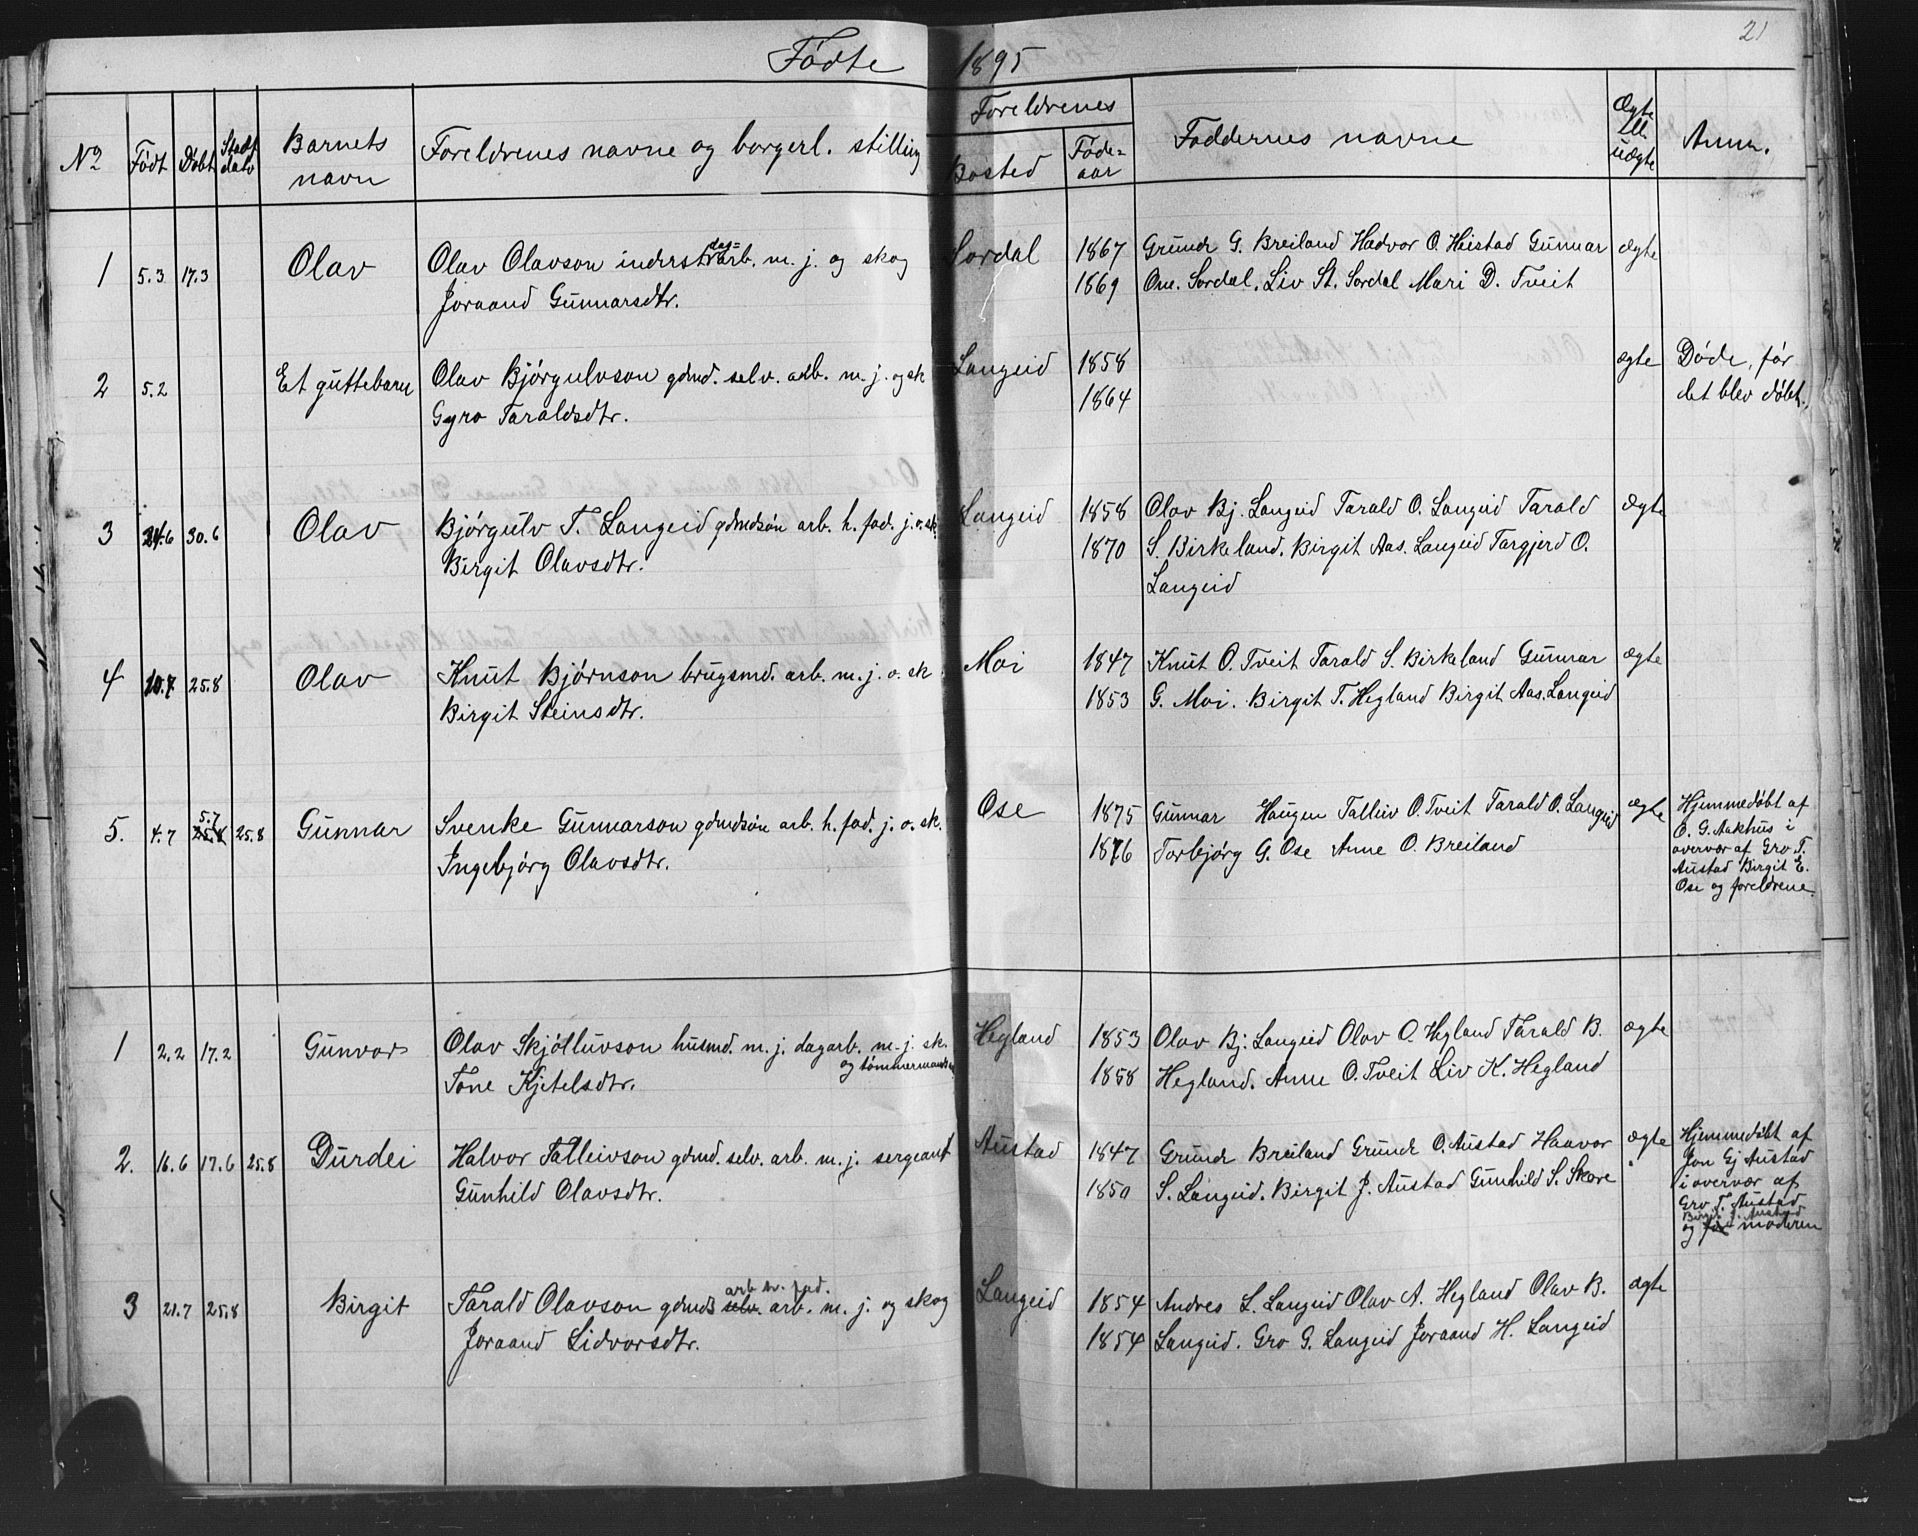 21
Fødte 1895
No Født Døbt Stadf. dato Barnets navn Foreldrenes navne og borgerl. stilling Foreldrenes Bosted Føde-aar Faddernes navne Ægte ell. uægte Anm.
1 5.3 17.3 Olav Olav Olavson inderst dag= arb. m. j. og skog Sordal 1867 Grundr G. Breiland Hadvor O. Heistad Gunnar ægte
Joraand Gunnarsdtr. 1869 One. Sordal. Liv St. Sordal Mari D. Tveit
2 5.2 Et guttebarn Olav Bjørgulvson gdmd. selv. arb. m. j. og sk Langeid 1858 ægte Døde, før
Gyro Taraldsdtr. 1864 det blev døbt.
3 24.6 30.6 Olav Bjørgulv T. Langeid gdmdsøn arb. h. fad. j. o. sk. Langeid 1858 Olav Bj. Langeid Tarald O. Langeid Tarald ægte
Birgit Olavsdtr. 1870 S. Birkeland. Birgit Aas. Langeid Targjerd O.
Langeid
4 10.7 25.8 Olav Knut Bjørnson brugsmd. arb. m. j. o. sk Moi 1847 Knut O. Tveit Tarald S. Birkeland Gunnar ægte
Birgit Steinsdtr. 1853 G. Moi. Birgit T. Hegland Birgit Aas. Langeid
5. 4.7 5.7 25.8 25.8 Gunnar Svenke Gunnarson gdmdsøn arb. h. fad. j. o. sk. Ose 1875 Gunnar Haugen Talluv O. Tveit Tarald O. Langeid ægte Hjemmedøbt af
Ingebjørg Olavsdtr. 1876 Torbjørg G. Ose Anne O. Breiland O. G. Aakhus i
overvær af Gro T.
Austad Birgit E.
Ose og foreldrene.
1 2.2 17.2 Gunvor Olav Skjøtluvson husmd. m. j. dagarb. m. j. sk. og tømmermandsa Hegland 1853 Olav Bj. Langeid Olav O. Hegland Tarald B. ægte
Tone Kjetelsdtr. 1858 Hegland. Anne O. Tveit Liv K. Hegland
2. 16.6 17.6 25.8 Durdei Halvor Talleivson gdmd. selv. arb. m. j. sergeant Austad 1847 Grundr Breiland Grundr O. Austad Haavor ægte Hjemmedøbt af
Gunhild Olavsdtr. 1850 S. Langeid. Birgit J. Austad Gunhild S. Skore Jon Gj Austad
i overvær af
Gro T. Austad
Birgit J. Austad
og moderen
3 21.7 25.8 Birgit Tarald Olavson gdmds selv. arb h. fad. arb. m. j. og skog Langeid 1854 Andres L. Langeid Olav A. Hegland Olav B. ægte
Joraand Lidvorsdtr. 1854 Langeid. Gro G. Langeid Joraand H. Langeid